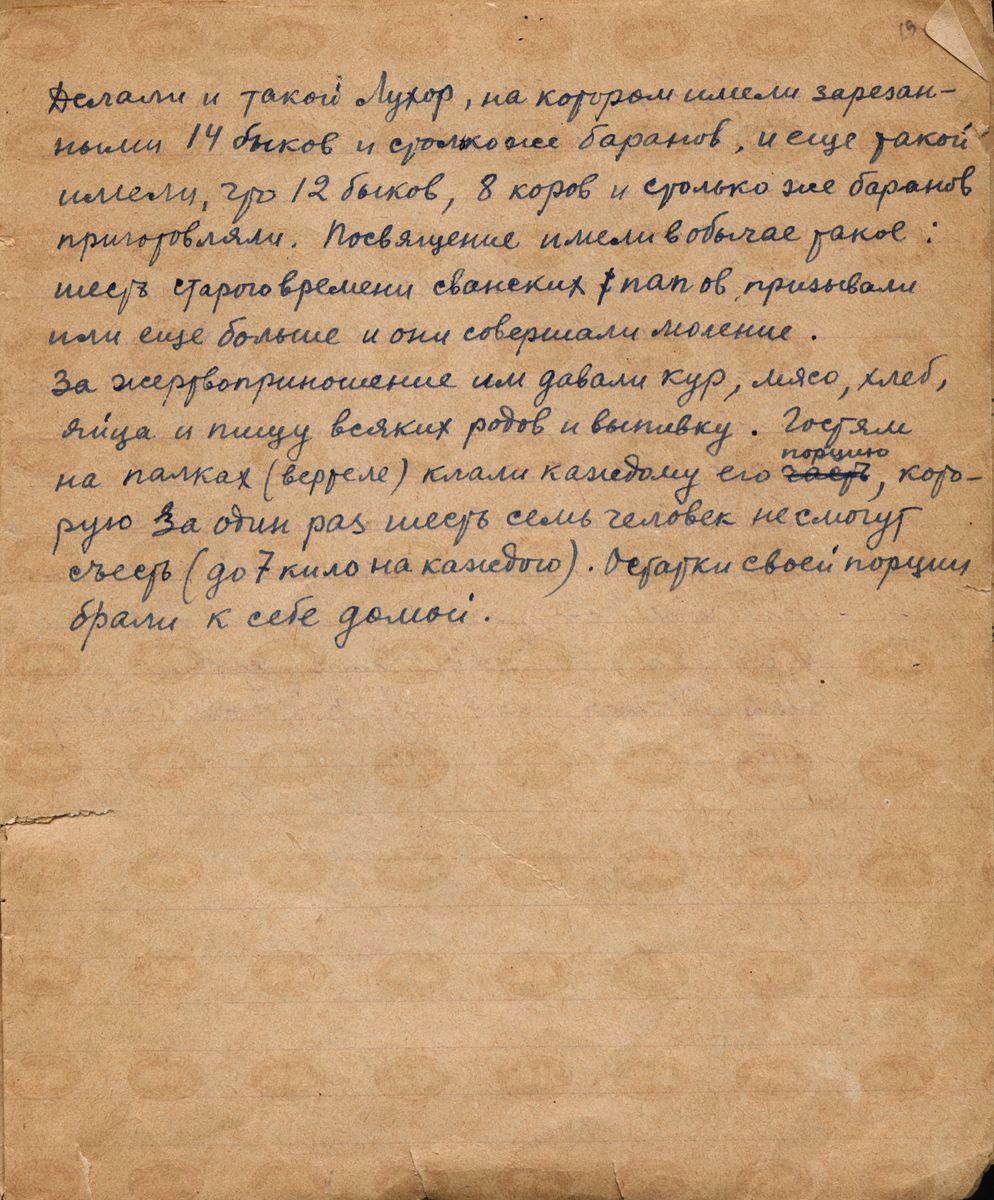 19
Делали и такой Лухор, на котором имели зарезан-
ными 14 быков и столкоже баранов, и еще такой
имели, что 12 быков, 8 коров и столько же баранов
приготовляли. Посвящение имели в обычае такое:
шесть старого времени сванских папов призывали
или еще больше и они совершали моление.
За жертвоприношение им давали кур, мясо, хлеб,
яйца и пищу всяких родов и выпивку. Гостям
порцию
на палках (вертеле) клали каждому его часть, кото-
рую за один раз шесть семь человек не смогут
съесть (до 7 кило на каждого). Остатки своей порции
брали к себе домой.